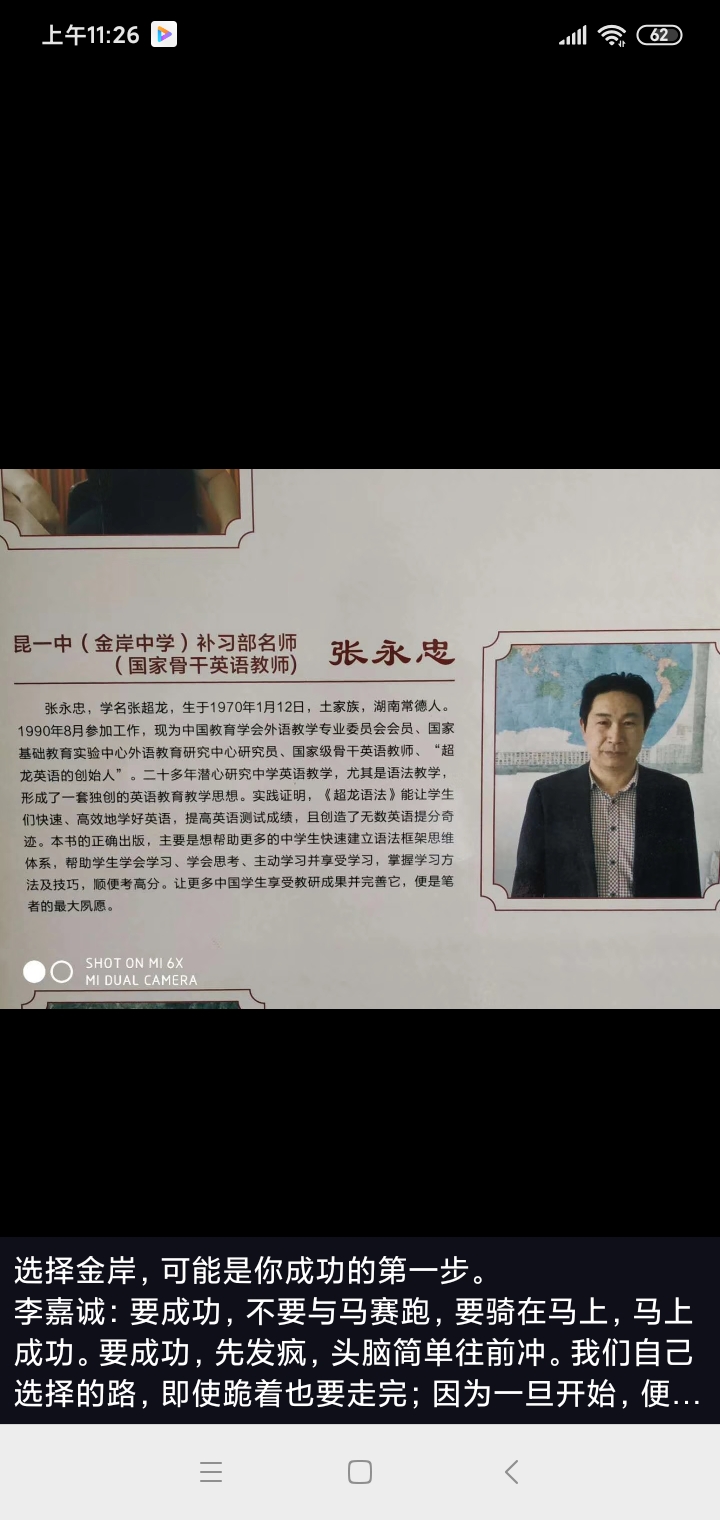 上午11:26
62
昆一中（金岸中学）补习部名师
（国家骨干英语教师）
张永忠
张永忠，学名张超龙，生于1970年1月12日，土家族，湖南常德人。
1990年8月参加工作，现为中国教育学会外语教学专业委员会会员、国家
基础教育实验中心外语教育研究中心研究员、国家级骨干英语教师、“超
龙英语的创始人”。二十多年潜心研究中学英语教学，尤其是语法教学，
形成了一套独创的英语教育教学思想。实践证明，《超龙语法》能让学生
们快速、高效地学好英语，提高英语测试成绩，且创造了无数英语提分奇
迹。本书的正确出版，主要是想帮助更多的中学生快速建立语法框架思维
体系，帮助学生学会学习、学会思考、主动学习并享受学习，掌握学习方
法及技巧，顺便考高分。让更多中国学生享受教研成果并完善它，便是笔
者的最大夙愿。
SHOT ON MI 6X
MI DUAL CAMERA
选择金岸，可能是你成功的第一步。
李嘉诚：要成功，不要与马赛跑，要骑在马上，马上
成功。要成功，先发疯，头脑简单往前冲。我们自己
选择的路，即使跪着也要走完；因为一旦开始，便...